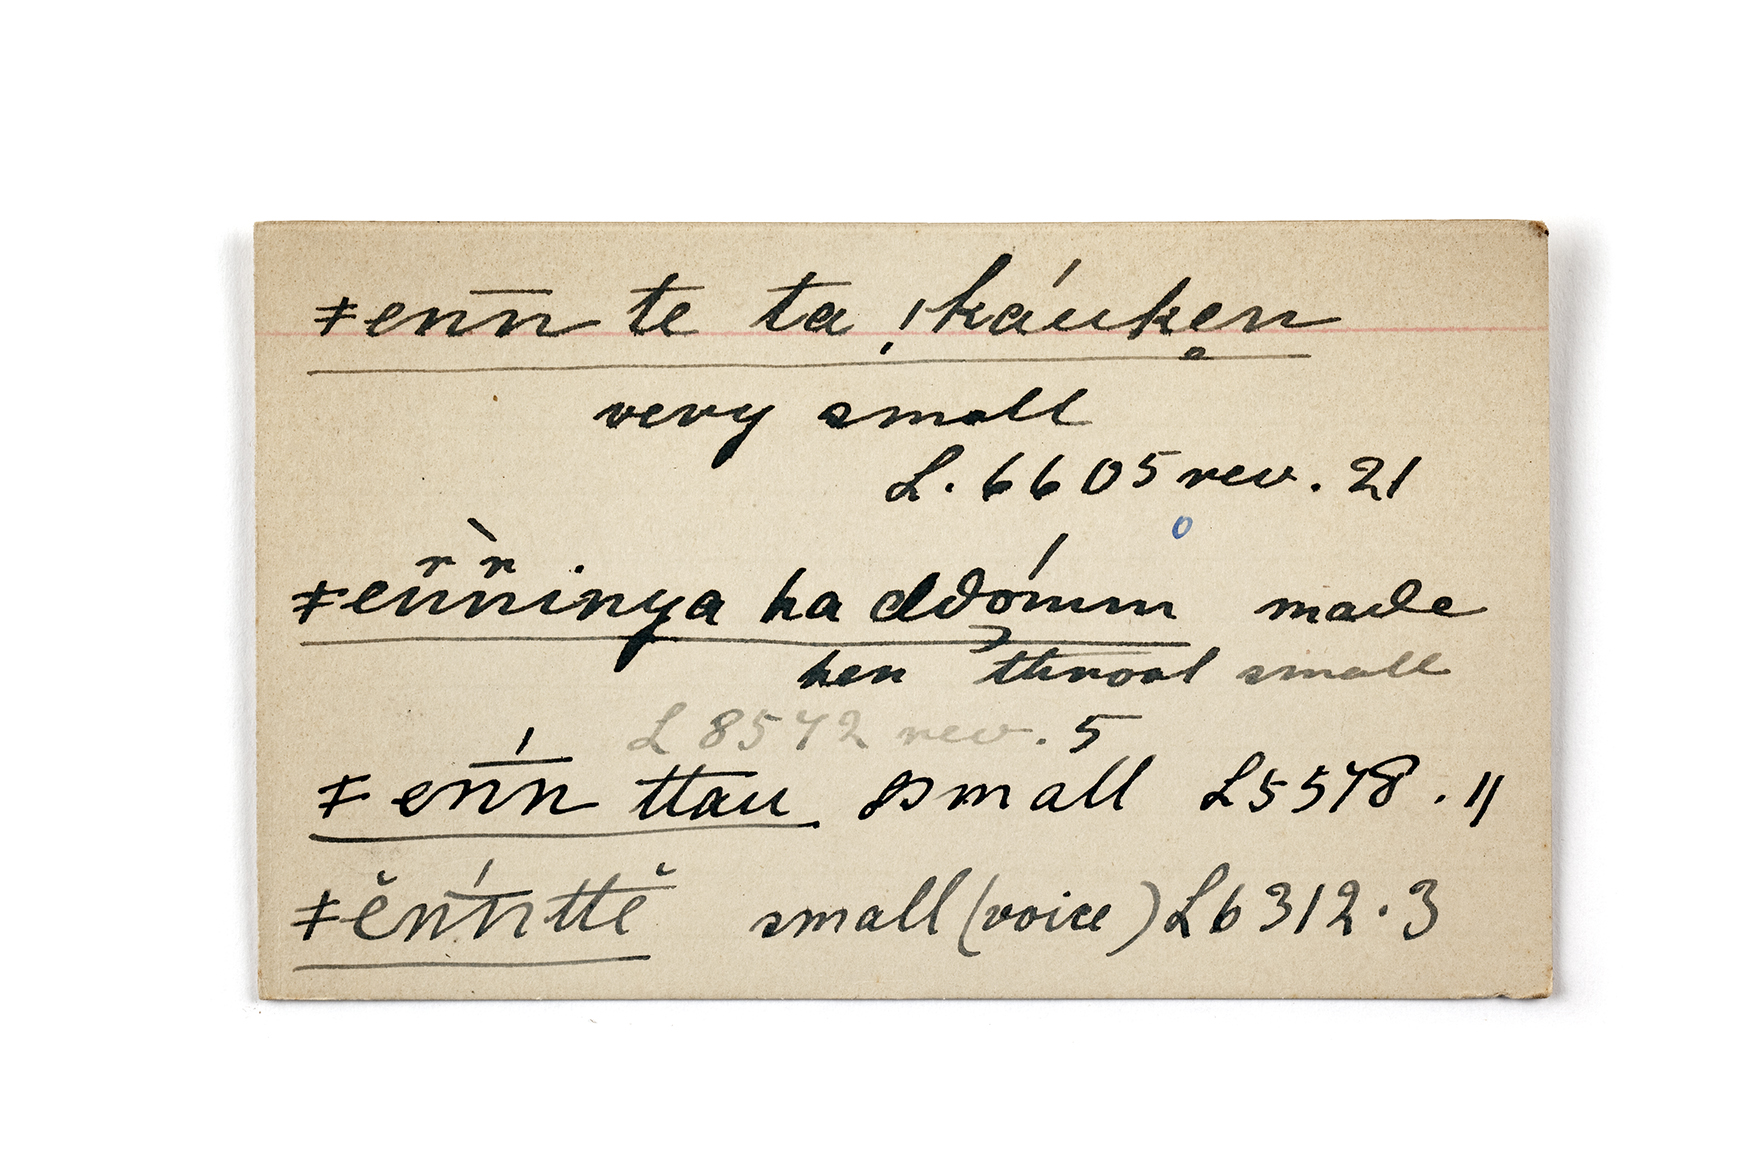 ǂenn̄ te ta ǀkáuken̥
very small
L. 6605 rev. 21
ǂen̆̀n̆inya ha ddómm made
her throat small
L 8572 rev. 5
ǂenń̄ ttau small L5578.11
ǂĕnń̄ttĕ small (voice) L6312.3